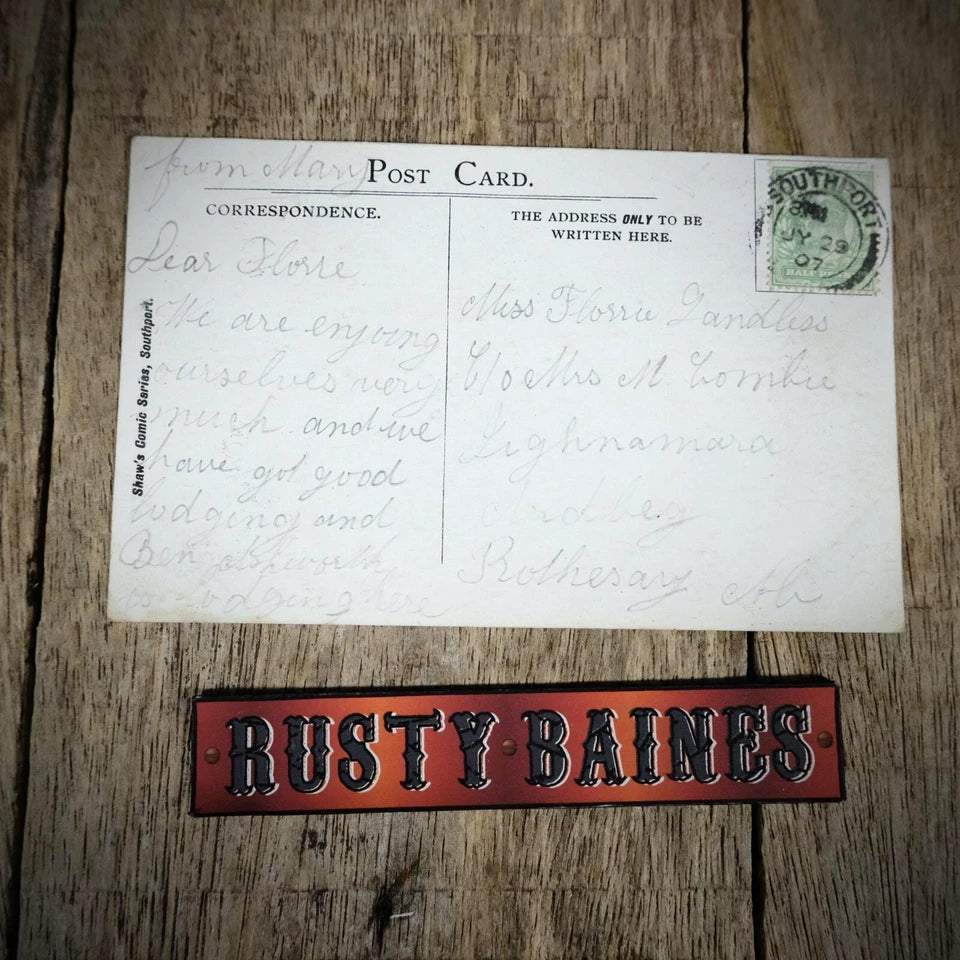 from Mary
POST CARD.
CORRESPONDENCE.
THE ADDRESS ONLY TO BE
WRITTEN HERE.
SOUTHPORT
JY 29
07
HALF
Shaw's Comic Series, Southport.
Dear Florre
We are enjoing
ourselves very
much and we
have got good
lodging and
Ben
lodging here
Miss Florrie Landless
C/o Mrs M Combie
Ardbeg
Rothesary
RUSTY BAINES